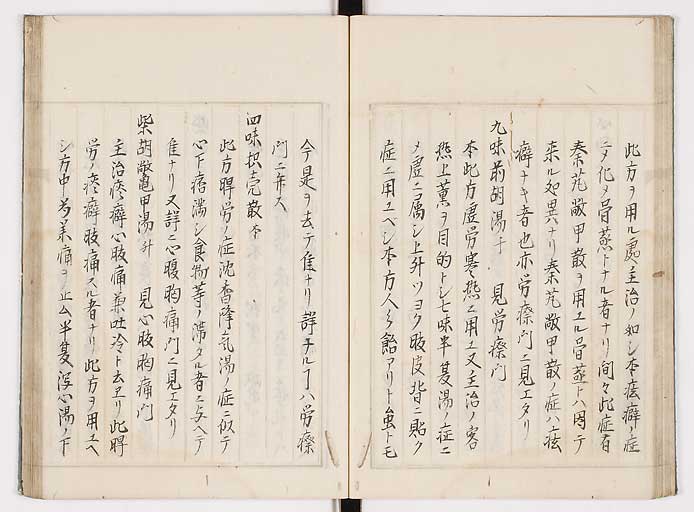 此方ヲ用ル處主治ノ如シ本痃癖ノ症
ニメ化メ骨蒸トナル者ナリ間々此症有
秦艽敝甲散ヲ用ユル骨蒸トハ因テ
来ル処異ナリ秦艽敝甲散ノ症ハ痃
癖ナキ者也亦労療門ニ見エタリ
九味前胡湯千 見労療門
本此方虚労寒熱ニ用ユ又主治ノ客
熱上薫ヲ目的トシ七味半夏湯ノ症ニ
メ虚ニ属シ上外ツヨク肢皮背ニ貼ク
症ニ用ユベシ本方人参飴アリト虽トモ
今是ヲ去テ隹ナリ詳ナル丁ハ労療
門ニ弁ス
四味枳壳散本
此方脾労ノ症沈香降気湯ノ症ニ似テ
心下痞満シ食物等ノ滞タル者ニ与ヘテ
隹ナリ又詳ニ心腹胸痛門ニ見エタリ
柴胡敝亀甲湯外 見心肢胸痛門
主治疼癖心肢痛兼吐冷ト去ヱリ此脾
労ノ疼癖肢痛スル者ナリ此方ヲ用ユヘ
シ方中芍薬痛ヲ止ム半夏瀉心湯ノ下